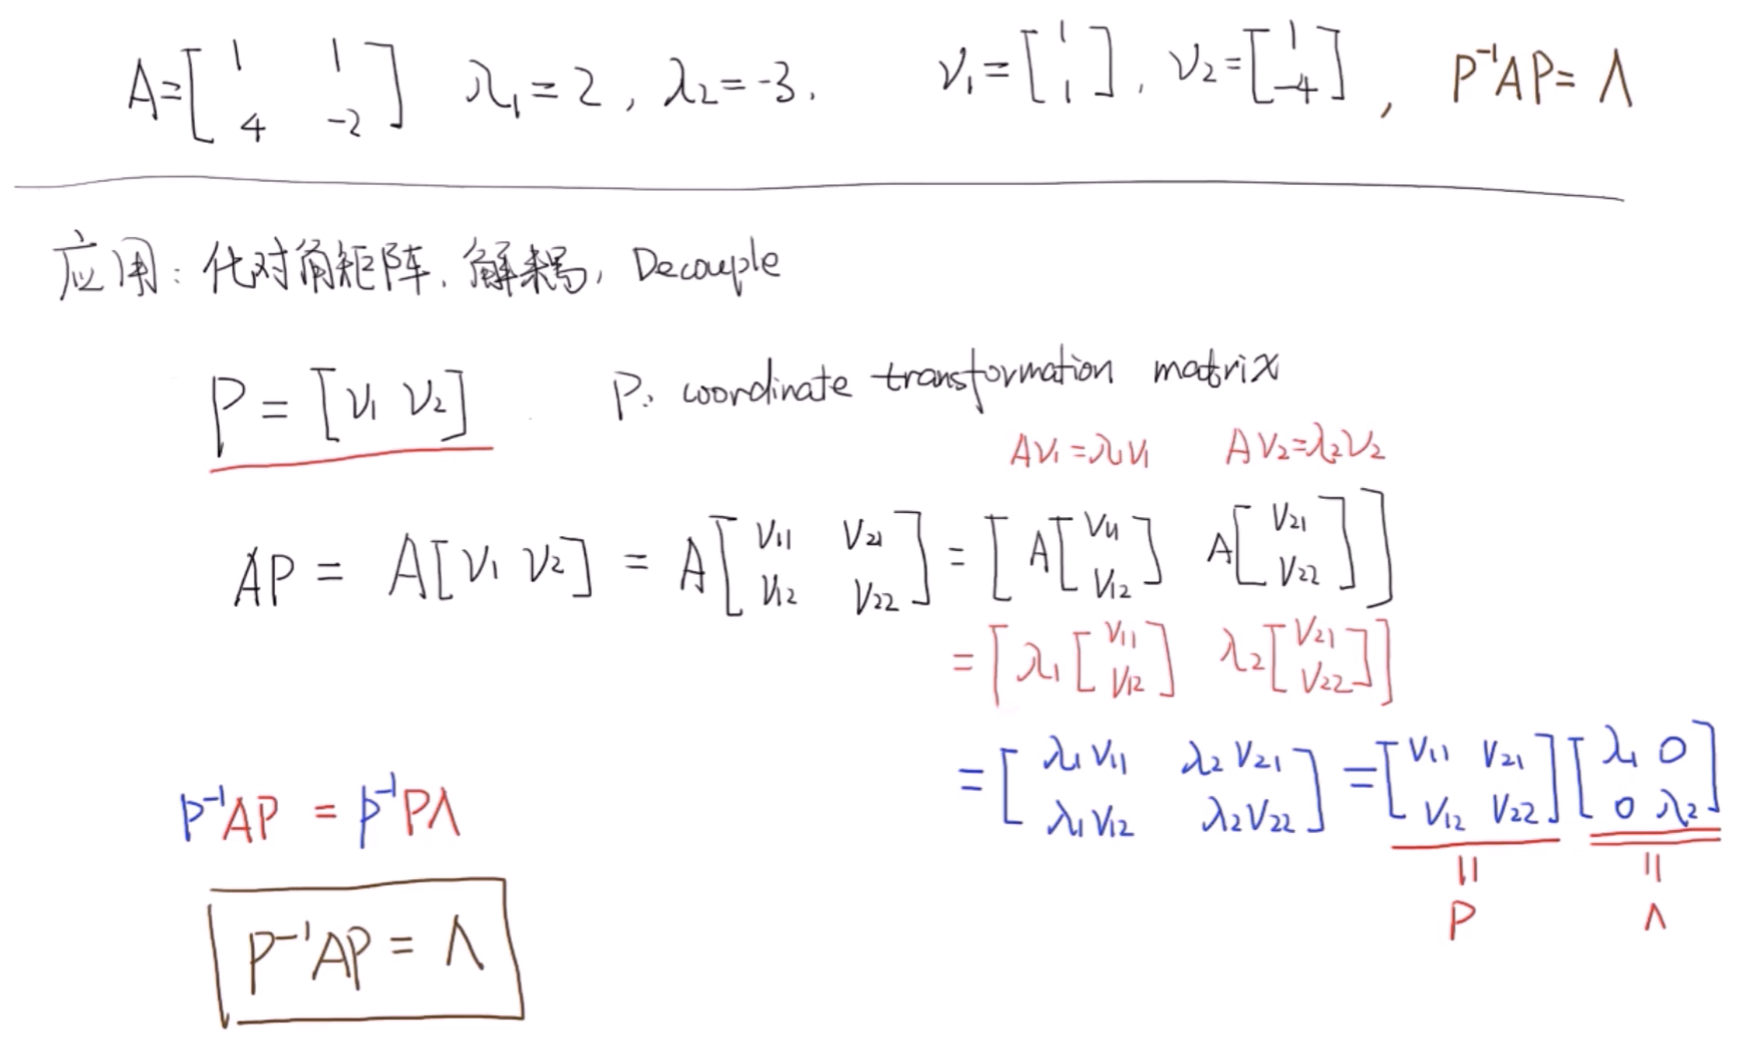 A = [1 1; 4 -2] λ₁ = 2, λ₂ = -3. ν₁ = [1; 1], ν₂ = [1; -4], P⁻¹AP = Λ
应用: 化对角矩阵. 解耦, Decouple
P = [ν₁ ν₂] P: coordinate transformation matrix
Aν₁ = λ₁ν₁ Aν₂ = λ₂ν₂
AP = A[ν₁ ν₂] = A[V₁₁ V₂₁; V₁₂ V₂₂] = [A[V₁₁; V₁₂] A[V₂₁; V₂₂]]
= [λ₁[V₁₁; V₁₂] λ₂[V₂₁; V₂₂]]
= [λ₁V₁₁ λ₂V₂₁; λ₁V₁₂ λ₂V₂₂] = [V₁₁ V₂₁; V₁₂ V₂₂][λ₁ 0; 0 λ₂]
P⁻¹AP = P⁻¹PΛ
= =
P Λ
P⁻¹AP = Λ